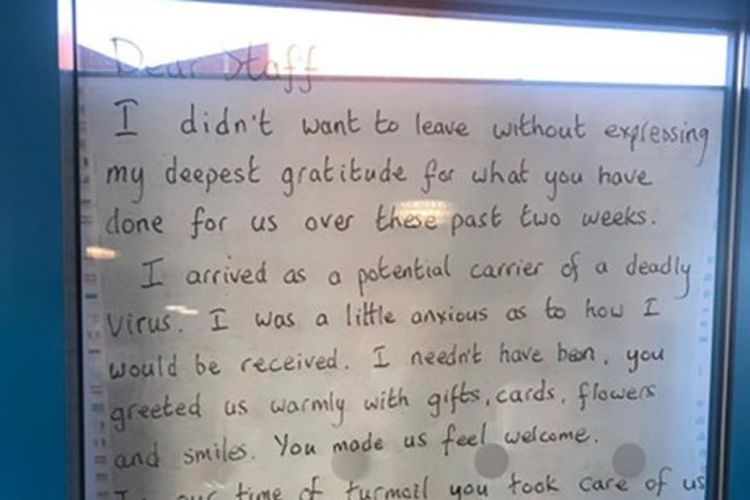 Dear Staff
I didn't want to leave without expressing
my deepest gratitude for what you have
done for us over these past two weeks.
I arrived as a potential carrier of a deadly
virus. I was a little anxious as to how I
would be received. I needn't have been, you
greeted us warmly with gifts, cards, flowers
and smiles. You made us feel welcome.
In our time of turmoil you took care of us